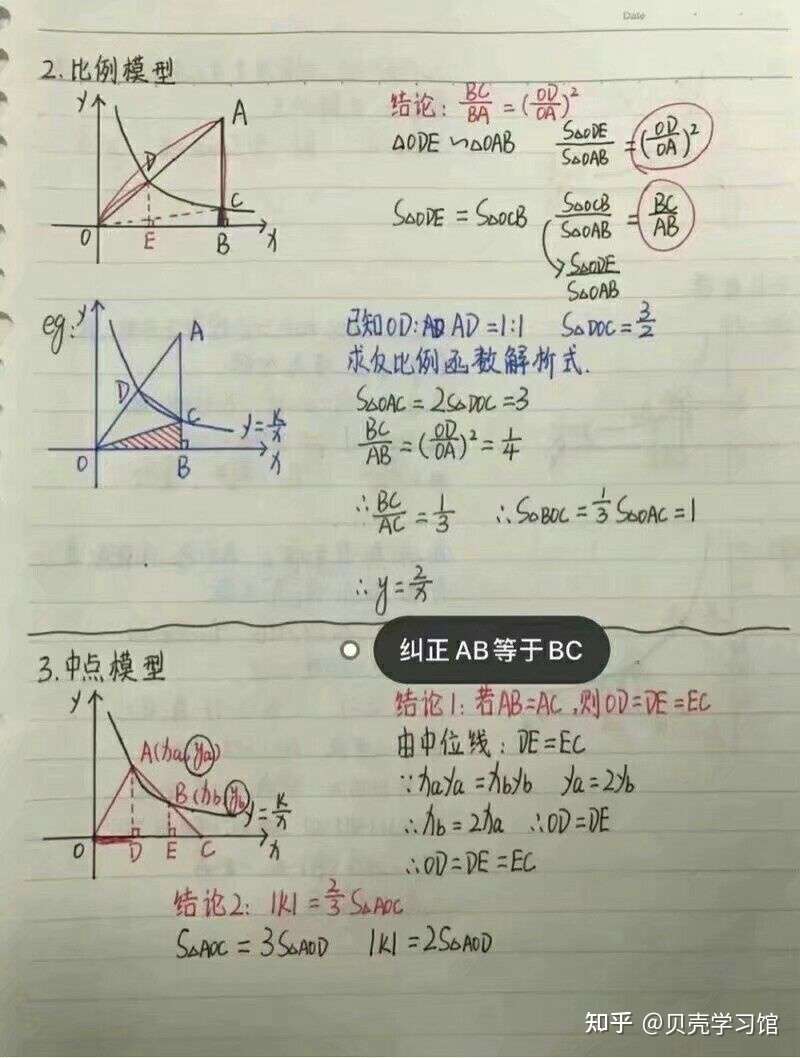 Date
2.比例模型
y
A
D
C
O
E
B
x
结论: BC/BA = (OD/OA)²
△ODE ∽ △OAB S△ODE/S△OAB = (OD/OA)²
S△ODE = S△OCB S△OCB/S△OAB = BC/AB
S△ODE/S△OAB
eg:
y
A
D
C
y=k/x
O
B
x
已知OD: AD=1:1 S△DOC=3/2
求反比例函数解析式.
S△OAC=2S△DOC=3
BC/AB=(OD/OA)²=1/4
∴BC/AC=1/3 ∴S△BOC=1/3S△OAC=1
∴y=2/x
纠正AB等于BC
3.中点模型
y
A(xa,ya)
B(xb,yb)
y=k/x
O
D
E
C
x
结论1:若AB=AC,则OD=DE=EC
由中位线:DE=EC
∵xaya=xbyb ya=2yb
∴xb=2xa ∴OD=DE
∴OD=DE=EC
结论2: |k|=2/3S△AOC
S△AOC=3S△AOD |k|=2S△AOD
知乎 @贝壳学习馆